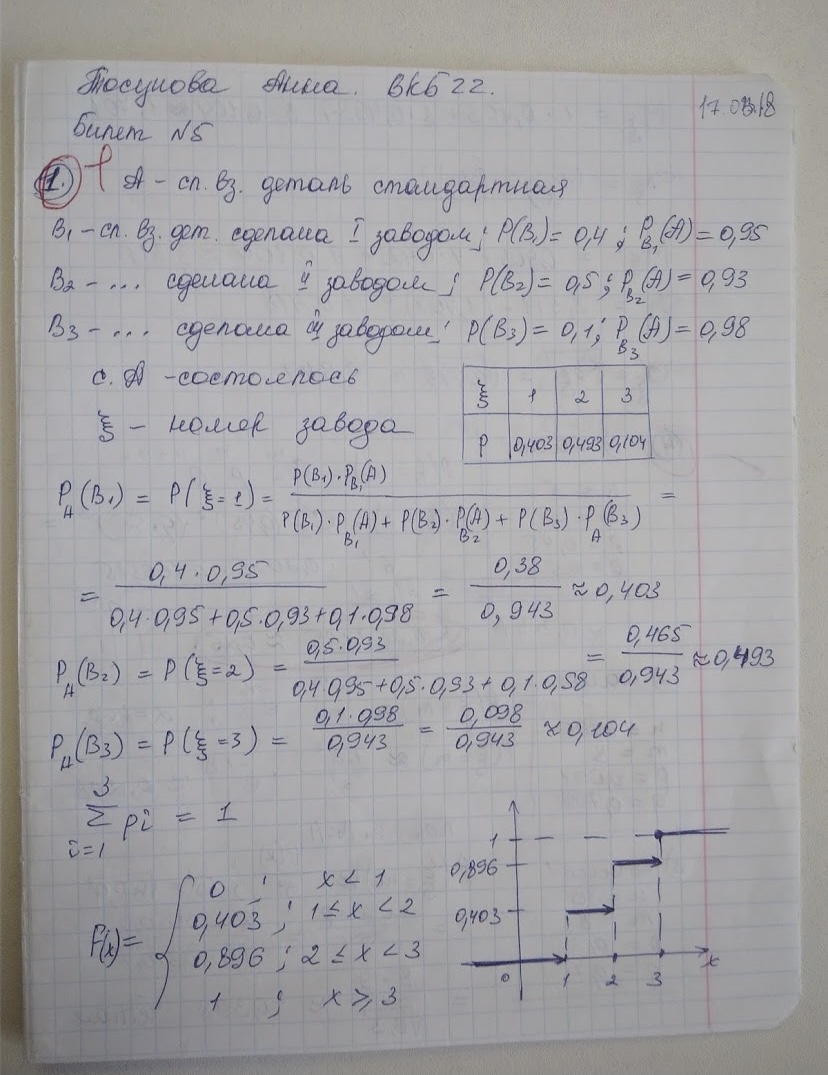 Тосунова Анна. ВКБ 22.
17.03.18
Билет №5
1. А – сл. вз. деталь стандартная
B₁ – сл. вз. дет. сделана I заводом; P(B₁) = 0,4; P_B₁(A) = 0,95
B₂ – ... сделана II заводом; P(B₂) = 0,5; P_B₂(A) = 0,93
B₃ – ... сделана III заводом; P(B₃) = 0,1; P_B₃(A) = 0,98
с. А – состоялось
ξ – номер завода
ξ 1 2 3
P 0,403 0,493 0,104
P_A(B₁) = P(ξ=1) = P(B₁)·P_B₁(A) / P(B₁)·P_B₁(A) + P(B₂)·P_B₂(A) + P(B₃)·P_A(B₃) =
= 0,4·0,95 / 0,4·0,95+0,5·0,93+0,1·0,98 = 0,38 / 0,943 ≈ 0,403
P_A(B₂) = P(ξ=2) = 0,5·0,93 / 0,4·0,95+0,5·0,93+0,1·0,58 = 0,465 / 0,943 ≈ 0,493
P_A(B₃) = P(ξ=3) = 0,1·0,98 / 0,943 = 0,098 / 0,943 ≈ 0,104
3
Σ pi = 1
i=1
F(x) = { 0 ; x < 1
0,403 ; 1 ≤ x < 2
0,896 ; 2 ≤ x < 3
1 ; x ≥ 3
1
0,896
0,403
0 1 2 3 x